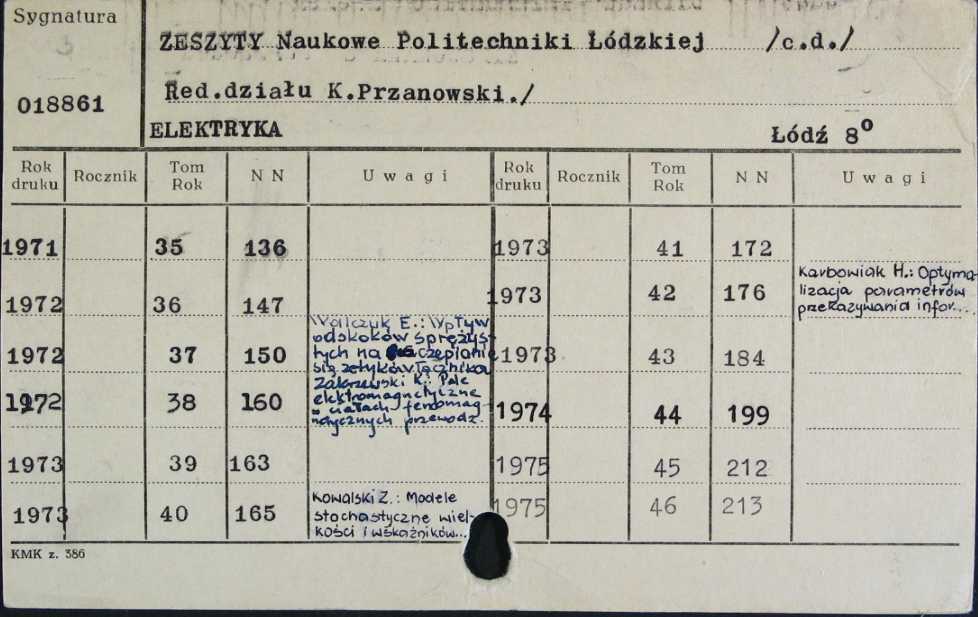 Sygnatura
ZESZYTY Naukowe Politechniki Łódzkiej /c.d./
018861
Red.działu K.Przanowski./
ELEKTRYKA
Łódź 8⁰
Rok druku Rocznik Tom Rok N N Uwagi Rok druku Rocznik Tom Rok N N Uwagi
1971 35 136
1972 36 147
1972 37 150
Walczuk E.: Wpływ
odskoków sprężys-
tych na sczepianie
się zetyków łącznika
1972 38 160
Zakrzewski K.: Pole
elektromagnetyczne
w ciałach ferromag-
netycznych przewodz.
1973 39 163
1973 40 165
Kowalski Z.: Modele
stochastyczne wiel-
kości i wskaźników...
1973 41 172
1973 42 176
Karbowiak H.: Optyma-
lizacja parametrów
przekazywania infor...
1973 43 184
1974 44 199
1975 45 212
1975 46 213
KMK z. 386